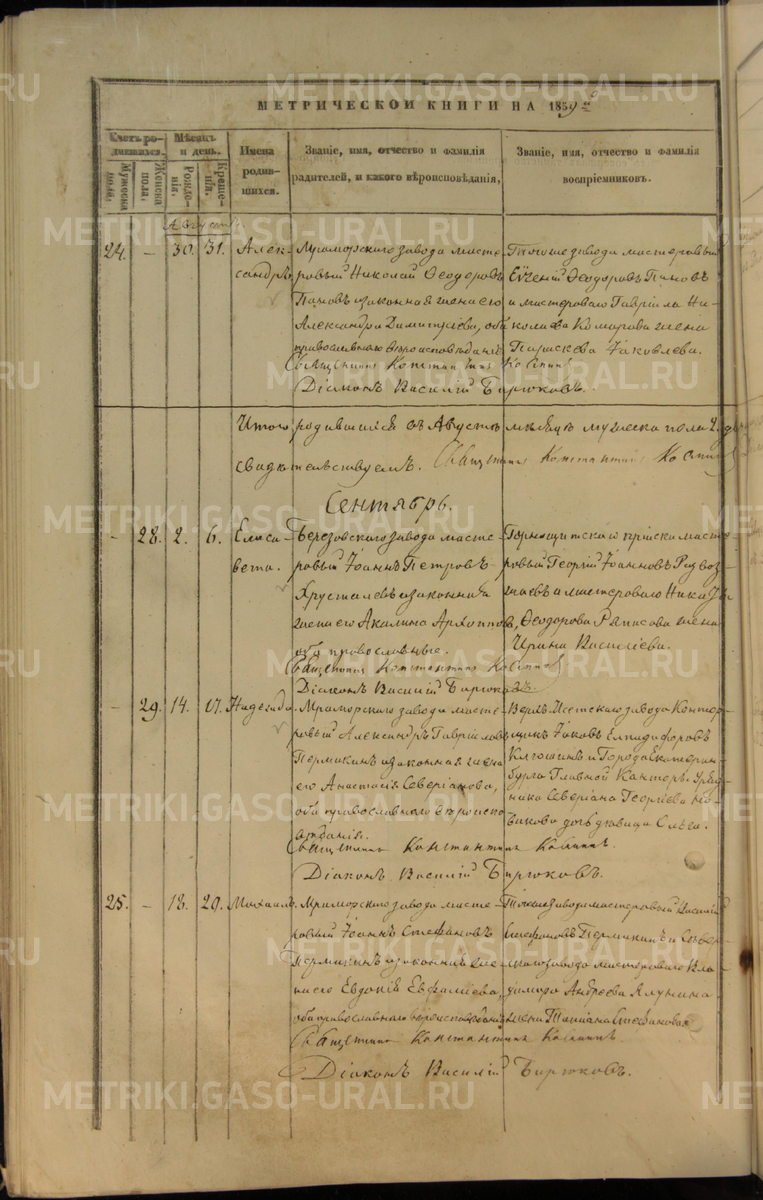 МЕТРИЧЕСКОЙ КНИГИ НА 1859 й
Счетъ родившихся.
Мужеска пола.
Женска пола.
Мѣсяцъ и день.
Рожденія.
Крещенія.
Имена родившихся.
Званіе, имя, отчество и фамилія родителей, и какого вѣроисповѣданія,
Званіе, имя, отчество и фамилія воспріемниковъ.
Августъ
24. – 30. 31. Александръ
Мраморскаго завода мастеровый Николай Ѳеодоровъ
Пановъ и законная жена его
Александра Димитріева, оба
православнаго вѣроисповѣданія
Тогоже завода мастеровый
Евгеній Ѳеодоровъ Пановъ
и мастероваго Гавріила Николаева Комарова жена
Параскева Іаковлева.
Священникъ Константинъ
Діаконъ Василій Бирюковъ.
Итого родившихся въ Августѣ мѣсяцѣ мужеска пола
свидѣтельствуемъ. Священникъ Константинъ
Сентябрь.
– 28. 2. 6. Елисавета.
Березовскаго завода мастеровый Іоаннъ Петровъ
Хрусталевъ и законная
жена его Акилина Архиппова,
оба православные.
Горнощитскаго пріиска мастеровый Георгій Іоанновъ
и мастероваго
Ѳеодорова жена
Ирина Василіева.
Священникъ Константинъ
Діаконъ Василій Бирюковъ
– 29. 14. 17. Надежда.
Мраморскаго завода мастеровый Александръ Гавріиловъ
Пермикинъ и законная жена
его Анастасія Северіанова,
оба православнаго вѣроисповѣданія.
Верхъ Исетскаго завода Конторщикъ Іаковъ Елпидифоровъ
и Города Екатеринбурга Главной Канторы Урядника Северіана Георгіева Новикова дочь дѣвица
Священникъ Константинъ
Діаконъ Василій Бирюковъ.
25. – 18. 29. Михаилъ.
Мраморскаго завода мастеровый Іоаннъ Стефановъ
Пермикинъ и законная жена его Евдокія Евфиміева,
оба православнаго вѣроисповѣданія
Тогоже завода мастеровый Василій
Стефановъ Пермикинъ и
завода мастероваго
Андреева Ялунина
жена Татіана Стефанова
Священникъ Константинъ
Діаконъ Василій Бирюковъ.
METRIKI.GASO-URAL.RU